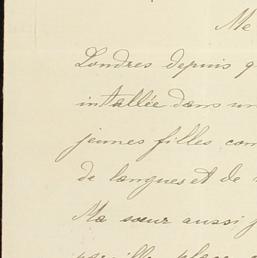 Me
Londres depuis q
intallée dans un
jeunes filles com
de langues et de
Ma sœur aussi j